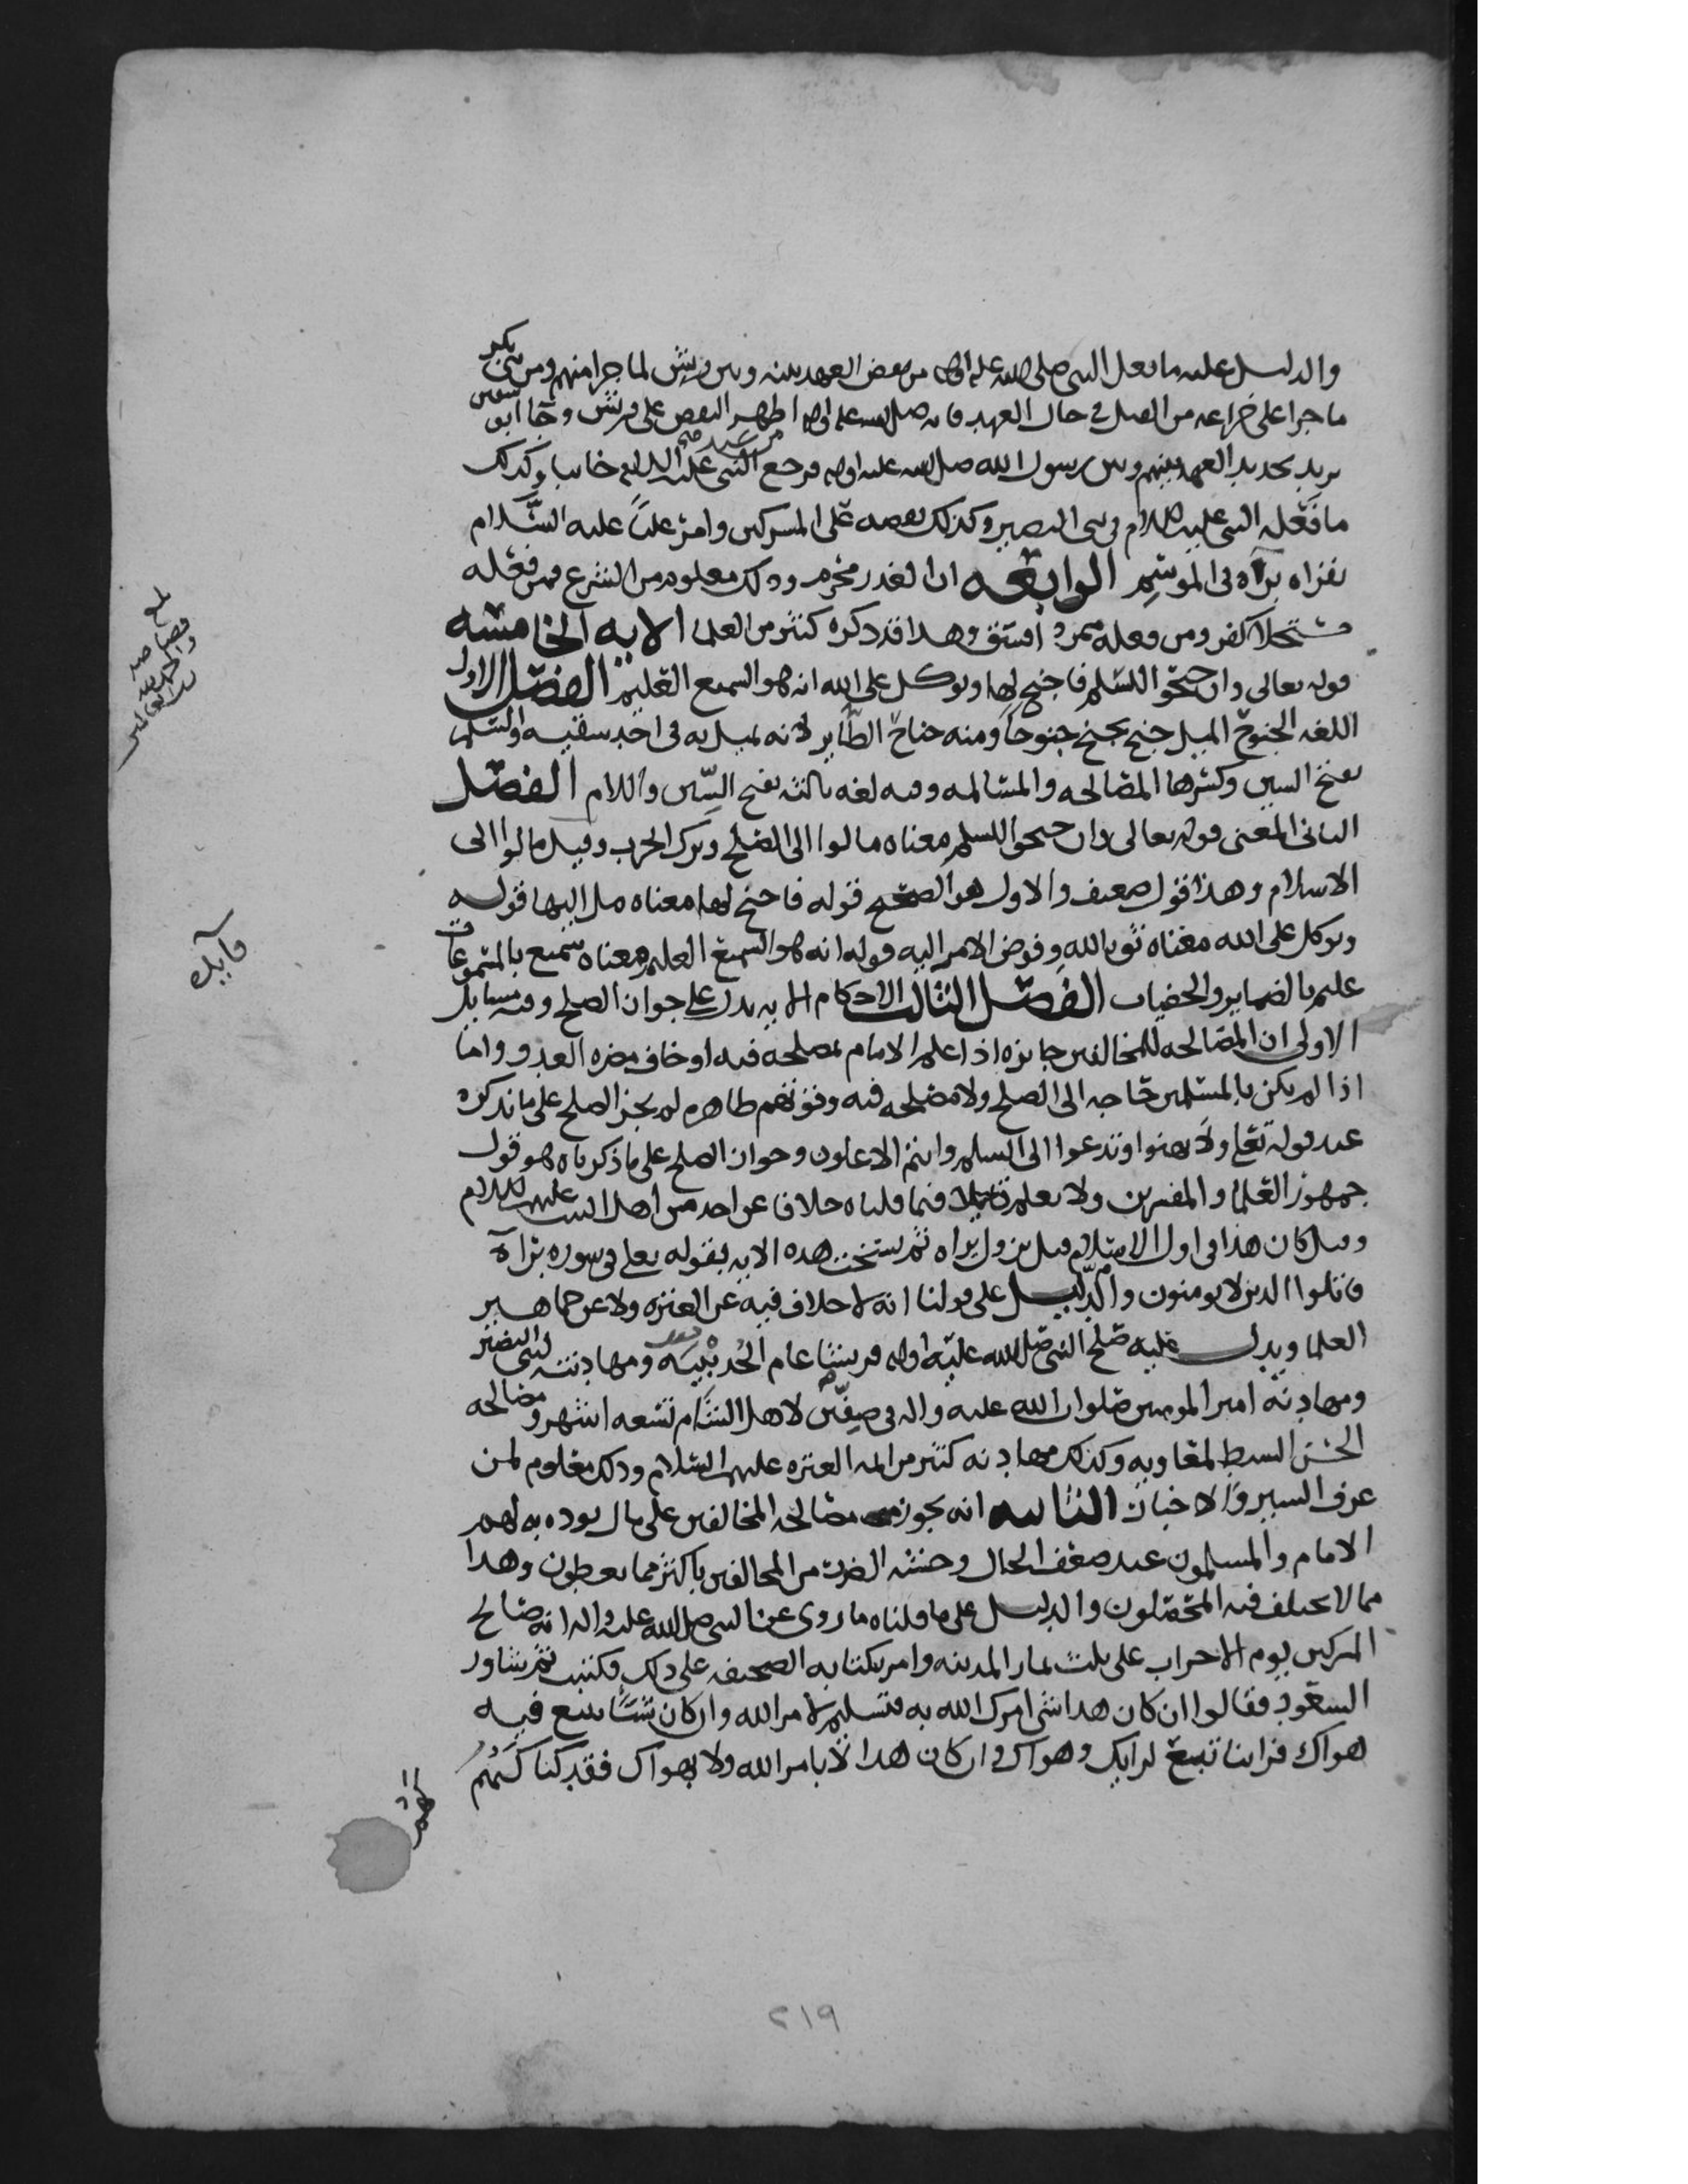 والدليل عليه ما فعل النبي صلى الله عليه واله من نقض العهد بينه وبين قريش لما جرا منهم ومن بني بكر
ما جرا على خزاعه من القتل في حال العهد فانه صلى الله عليه واله اظهر النقض على قريش وجا ابو سفين
يريد تجديد العهد بينهم وبين رسول الله صلى الله عليه واله فرجع من عند النبي عليه السلام خايبا وكذلك
ما فعله النبي عليه السلام في بني النضير وكذلك نقضه على المشركين وامر علياً عليه السلام
بقراه برآه في الموسم الرابعه ان الغدر محرم وذلك معلوم من الشرع فمن فعله
مستحلا كفر ومن فعله متمرد افسق وهذا قد ذكره كثير من العلما الايه الخامسه
قوله تعالى وان جنحوا للسلم فاجنح لها وتوكل على الله انه هو السميع العليم الفصل الاول
اللغه الجنوح الميل جنح يجنح جنوحاً ومنه جناح الطاير لانه يميل به في احد شقيه والسلم
بفتح السين وكسرها المصالحه والمسالمه وفيه لغه ثالثه بفتح السين واللام الفصل
الثاني المعنى قوله تعالى وان جنحوا للسلم معناه مالوا الى الصلح وترك الحرب وقيل مالوا الى
الاسلام وهذا قول ضعيف والاول هو الصحيح قوله فاجنح لها معناه مل اليها قوله
وتوكل على الله معناه ثق بالله وفوض الامر اليه قوله انه هو السميع العليم معناه سميع بالمسموعات
عليم بالضماير والخفيات الفصل الثالث الاحكام الايه تدل على جواز الصلح وفيه مسايل
الاولى ان المصالحه للمخالفين جايزه اذا علم الامام مصلحه فيه او خاف مضره العدو واما
اذا لم يكن بالمسلمين حاجه الى الصلح ولا مصلحه فيه وقوتهم ظاهره لم يجز الصلح على ما نذكره
عند قوله تعلى ولا تهنوا وتدعوا الى السلم وانتم الاعلون وجواز الصلح على ما ذكرناه هو قول
جمهور العلما والمفسرين ولا نعلم قايلا فيما قلناه خلافا عن احد من اهل البيت عليهم السلام
وقيل كان هذا في اول الاسلام قبل نزول براه ثم نسخت هذه الايه بقوله تعلى في سوره برآة
قاتلوا الذين لا يومنون والدليل على قولنا انه لا خلاف فيه عن العتره ولا عن جماهير
العلما ويدل عليه صلح النبي صلى الله عليه واله قريشا عام الحديبيه ومهادنته لبني النضير
ومهادنة امير المومنين صلوات الله عليه واله في صفين لاهل الشام تسعه اشهر ومصالحه
الحسن السبط لمعاويه وكذلك مهادنه كثير من ايمه العتره عليهم السلام وذلك معلوم لمن
عرف السير والاخبار الثانيه انه يجوز مصالحه المخالفين على مال يوده به لهم
الامام والمسلمون عند ضعف الحال وخشيه الضرر من المخالفين باكثر مما يعطون وهذا
مما لا يختلف فيه المحصلون والدليل على ما قلناه ما روي عن النبي صلى الله عليه واله انه صالح
المشركين يوم الاحزاب على ثلث ثمار المدينه وامر بكتابه الصحيفه على ذلك فكتبت ثم شاور
السعود فقالوا ان كان هذا شي امرك الله به فتسليم لامر الله وان كان شياً تتبع فيه
هواك فراينا تبع لرايك وهواك وان كان هذا لا بامر الله ولا بهواك فقد كنا كنتم
بلغ
فايده
٢١٩